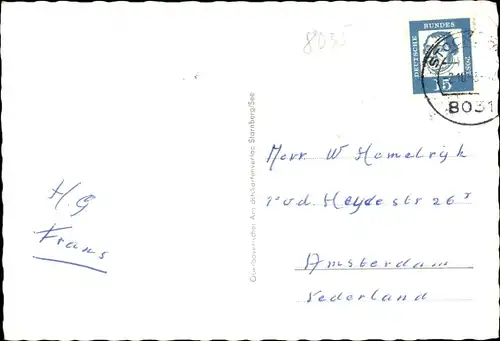 8035
DEUTSCHE
BUNDES
POST
15
8031
H.G
Frans
Oberbayerischer Ansichtskartenverlag Starnberg/See
Herr W Hamelrijk
v.d. Heydestr 26 I
Amsterdam
Nederland